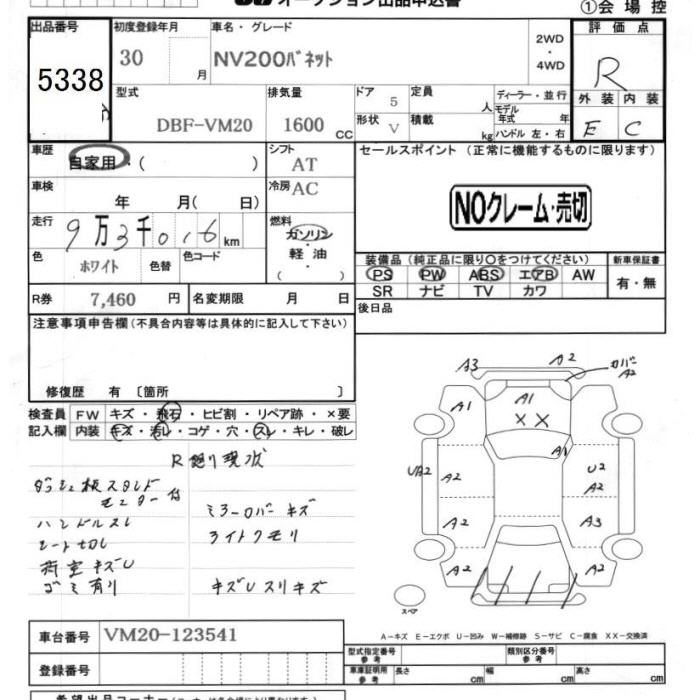 オークション出品申込書
①会場控
出品番号
5338
初度登録年月
30 月
車名・グレード
NV200バネット
2WD
・
4WD
評価点
R
型式
DBF-VM20
排気量
1600 CC
ドア 5
形状 V
定員 人
積載 kg
ディーラー・並行
モデル年式 年
ハンドル 左・右
外装 内装
E C
車歴
自家用・( )
シフト AT
車検 年 月( 日)
冷房 AC
セールスポイント (正常に機能するものに限ります)
NOクレーム・売切
走行
9万3千016km
燃料
ガソリン
・
軽油
・
( )
色 ホワイト 色替 色コード
装備品 (純正品に限り〇をつけてください)
新車保証書
PS PW ABS エアB AW
SR ナビ TV カワ
有・無
R券 7,460 円 名変期限 月 日
後日品
注意事項申告欄(不具合内容等は具体的に記入して下さい)
修復歴 有 〔箇所 〕
検査員 FW キズ・飛石・ヒビ割・リペア跡・×要
記入欄 内装 キズ・汚レ・コゲ・穴・スレ・キレ・破レ
ダッシュ板スタンド
モニター付
ハンドルスレ
ミラーカバーキズ
ライトクモリ
荷室キズU
ゴミ有り
キズUスリキズ
A3 A2 カバー A2
A1 A1
XX
A1
UB2 A2 U2 A2
A2 A3
A2 A2
スペア
A-キズ E-エクボ U-凹み W-補修跡 S-サビ C-腐食 XX-交換済
車台番号 VM20-123541
型式指定番号 参考
類別区分番号 参考
登録番号
車庫証明用 参考
長さ cm 幅 cm 高さ cm